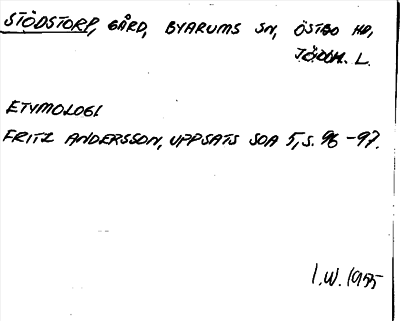 STÖDSTORP, GÅRD, BYARUMS SN, ÖSTBO HD,
JÖNK. L.
ETYMOLOGI
FRITZ ANDERSSON, UPPSATS SOA 5, S. 96-97.
I.W. 1955